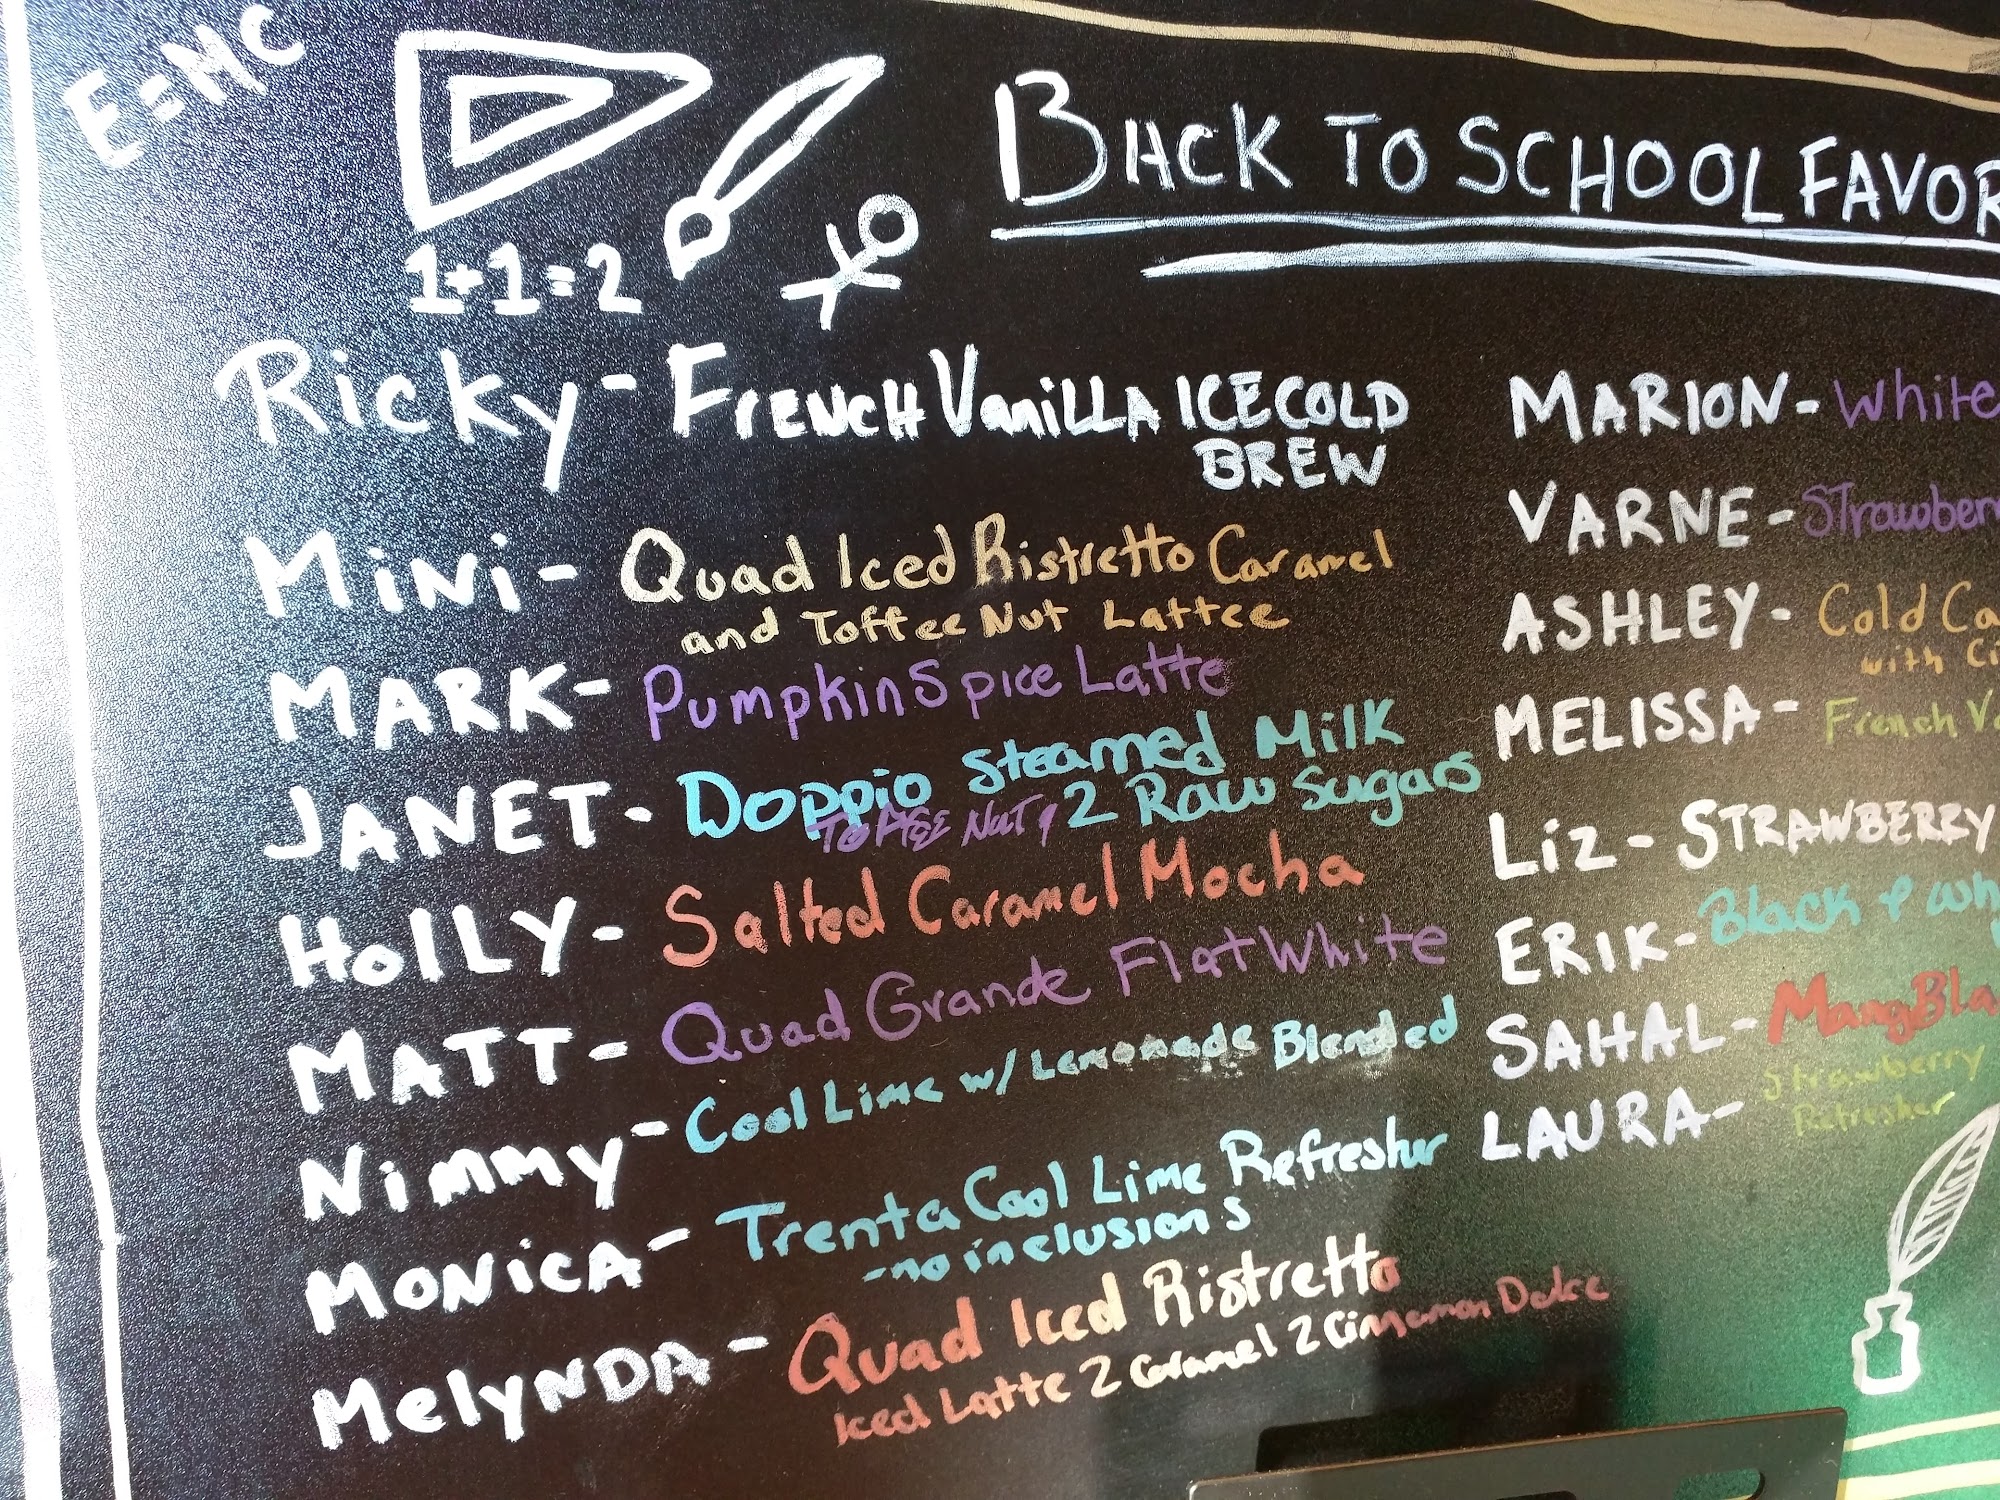 E=MC
1+1=2
BACK TO SCHOOL FAVOR
Ricky- FRENCH VaniLLA ICE COLD
BREW
MiNi- Quad Iced Ristretto Caramel
and Toffee Nut Lattee
MARK- Pumpkin Spice Latte
JANET- Doppio Steamed Milk
Toffee Nut, 2 Raw Sugars
Holly- Salted Caramel Mocha
MATT- Quad Grande Flat White
Nimmy- Cool Lime w/ Lemonade Blended
MONicA- Trenta Cool Lime Refresher
-no inclusions
MelyNDA- Quad Iced Ristretto
Iced Latte 2 Caramel 2 Cinnamon Dolce
MARION- White
VARNE- Strawber
ASHLEY- Cold Ca
with Ci
MELISSA- French Va
Liz- STRAWBERRY
ERIK- Black & Wh
SAHAL- MangBla
LAURA- Strawberry
Refresher